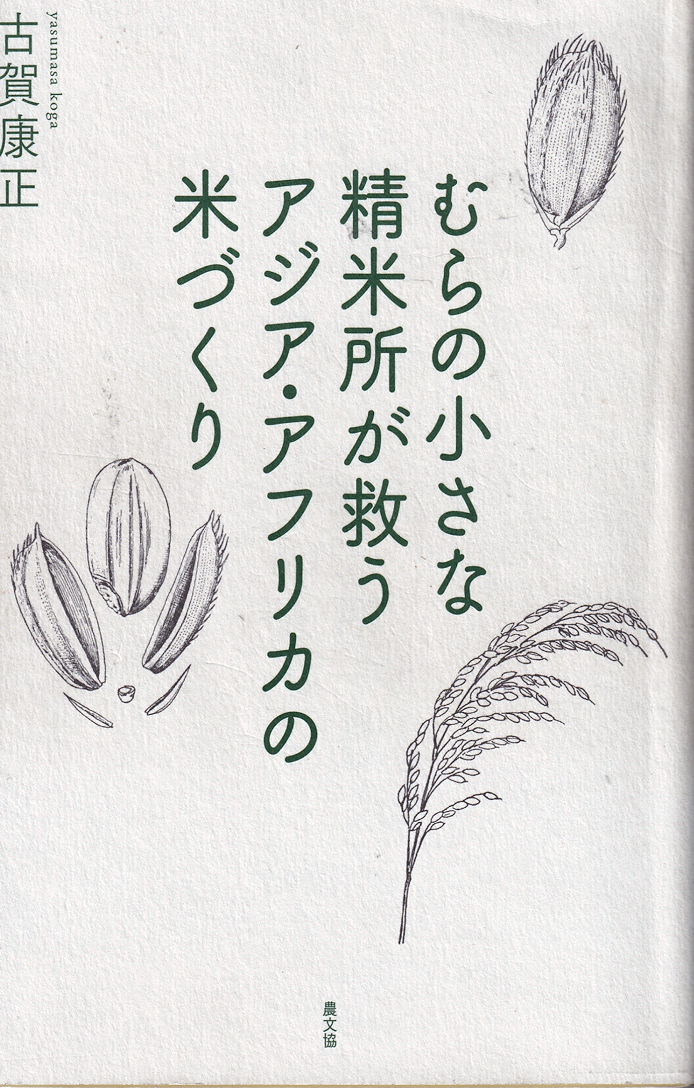 むらの小さな
精米所が救う
アジア・アフリカの
米づくり
yasumasa koga
古賀康正
農文協